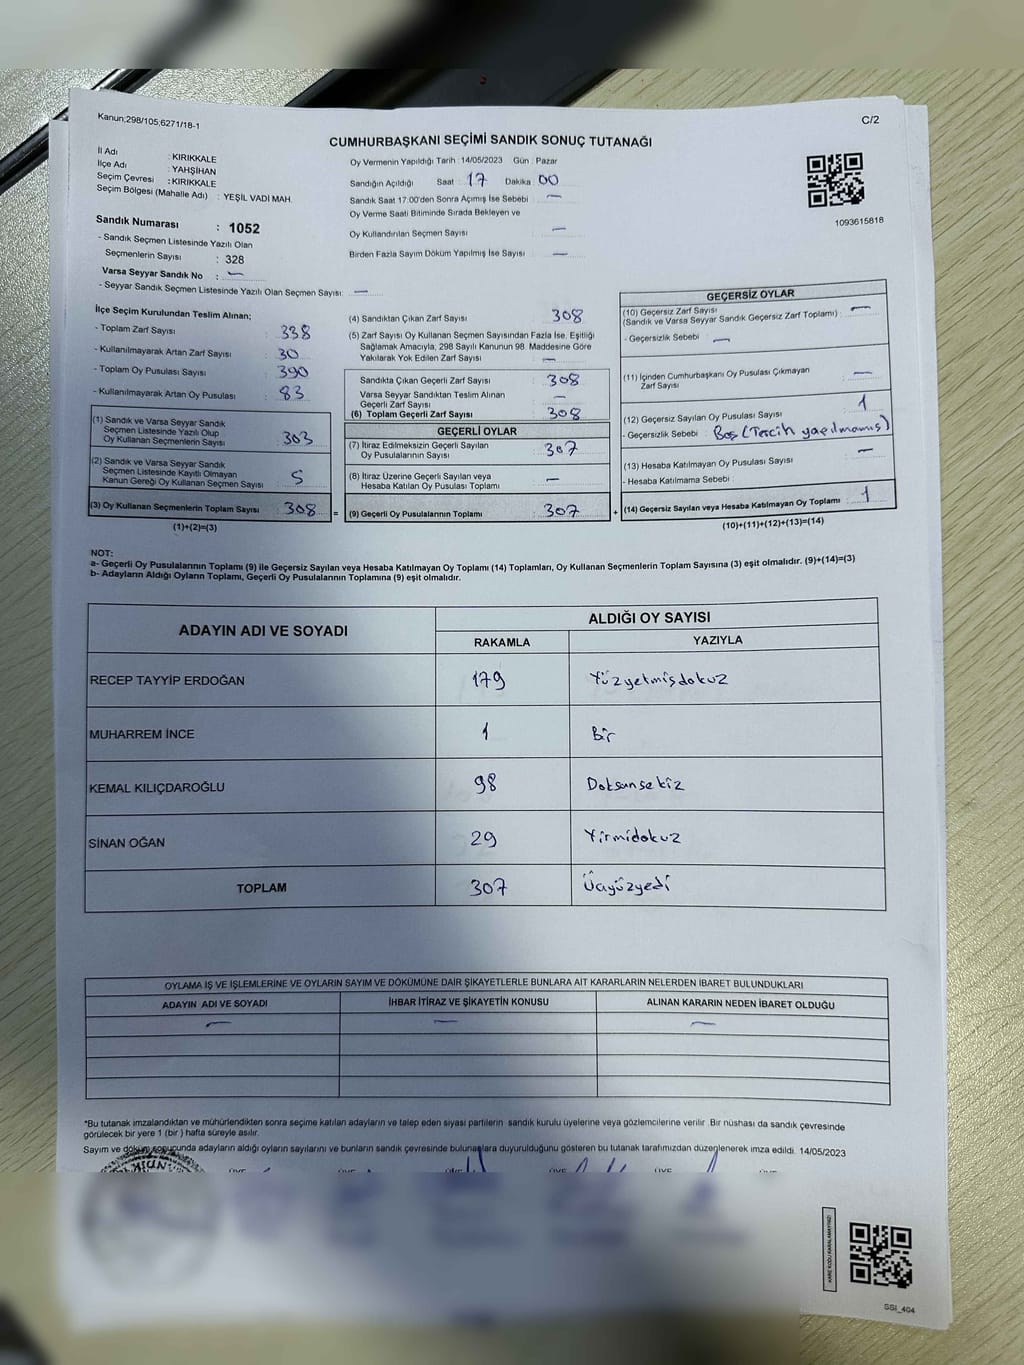 Kanun;298/105,6271/18-1
C/2
CUMHURBAŞKANI SEÇİMİ SANDIK SONUÇ TUTANAĞI
İl Adı : KIRIKKALE
İlçe Adı : YAHŞİHAN
Seçim Çevresi : KIRIKKALE
Seçim Bölgesi (Mahalle Adı) : YEŞİL VADİ MAH.
Sandık Numarası : 1052
- Sandık Seçmen Listesinde Yazılı Olan
Seçmenlerin Sayısı : 328
Varsa Seyyar Sandık No : —
- Seyyar Sandık Seçmen Listesinde Yazılı Olan Seçmen Sayısı: —
Oy Vermenin Yapıldığı Tarih : 14/05/2023 Gün : Pazar
Sandığın Açıldığı Saat : 17 Dakika : 00
Sandık Saat 17:00'den Sonra Açımış İse Sebebi —
Oy Verme Saati Bitiminde Sırada Bekleyen ve
Oy Kullandırılan Seçmen Sayısı —
Birden Fazla Sayım Döküm Yapılmış İse Sayısı —
1093615816
İlçe Seçim Kurulundan Teslim Alınan;
- Toplam Zarf Sayısı : 338
- Kullanılmayarak Artan Zarf Sayısı : 30
- Toplam Oy Pusulası Sayısı : 390
- Kullanılmayarak Artan Oy Pusulası : 83
(1) Sandık ve Varsa Seyyar Sandık
Seçmen Listesinde Yazılı Olup
Oy Kullanan Seçmenlerin Sayısı : 303
(2) Sandık ve Varsa Seyyar Sandık
Seçmen Listesinde Kayıtlı Olmayan
Kanun Gereği Oy Kullanan Seçmen Sayısı : 5
(3) Oy Kullanan Seçmenlerin Toplam Sayısı : 308
(1)+(2)=(3)
(4) Sandıktan Çıkan Zarf Sayısı : 308
(5) Zarf Sayısı Oy Kullanan Seçmen Sayısından Fazla İse, Eşitliği
Sağlamak Amacıyla, 298 Sayılı Kanunun 98. Maddesine Göre
Yakılarak Yok Edilen Zarf Sayısı : —
Sandıkta Çıkan Geçerli Zarf Sayısı : 308
Varsa Seyyar Sandıktan Teslim Alınan
Geçerli Zarf Sayısı : —
(6) Toplam Geçerli Zarf Sayısı : 308
GEÇERLİ OYLAR
(7) İtiraz Edilmeksizin Geçerli Sayılan
Oy Pusulalarının Sayısı : 307
(8) İtiraz Üzerine Geçerli Sayılan veya
Hesaba Katılan Oy Pusulası Toplamı : —
= (9) Geçerli Oy Pusulalarının Toplamı : 307
GEÇERSİZ OYLAR
(10) Geçersiz Zarf Sayısı
(Sandık ve Varsa Seyyar Sandık Geçersiz Zarf Toplamı) : —
- Geçersizlik Sebebi : —
(11) İçinden Cumhurbaşkanı Oy Pusulası Çıkmayan
Zarf Sayısı : —
(12) Geçersiz Sayılan Oy Pusulası Sayısı : 1
- Geçersizlik Sebebi : Boş (Tercih yapılmamış)
(13) Hesaba Katılmayan Oy Pusulası Sayısı : —
- Hesaba Katılmama Sebebi :
+ (14) Geçersiz Sayılan veya Hesaba Katılmayan Oy Toplamı : 1
(10)+(11)+(12)+(13)=(14)
NOT:
a- Geçerli Oy Pusulalarının Toplamı (9) ile Geçersiz Sayılan veya Hesaba Katılmayan Oy Toplamı (14) Toplamları, Oy Kullanan Seçmenlerin Toplam Sayısına (3) eşit olmalıdır. (9)+(14)=(3)
b- Adayların Aldığı Oyların Toplamı, Geçerli Oy Pusulalarının Toplamına (9) eşit olmalıdır.
ADAYIN ADI VE SOYADI ALDIĞI OY SAYISI
RAKAMLA YAZIYLA
RECEP TAYYİP ERDOĞAN 179 Yüzyetmişdokuz
MUHARREM İNCE 1 Bir
KEMAL KILIÇDAROĞLU 98 Doksansekiz
SİNAN OĞAN 29 Yirmidokuz
TOPLAM 307 Üçyüzyedi
OYLAMA İŞ VE İŞLEMLERİNE VE OYLARIN SAYIM VE DÖKÜMÜNE DAİR ŞİKAYETLERLE BUNLARA AİT KARARLARIN NELERDEN İBARET BULUNDUKLARI
ADAYIN ADI VE SOYADI İHBAR İTİRAZ VE ŞİKAYETİN KONUSU ALINAN KARARIN NEDEN İBARET OLDUĞU
— — —
*Bu tutanak imzalandıktan ve mühürlendikten sonra seçime katılan adayların ve talep eden siyasi partilerin sandık kurulu üyelerine veya gözlemcilerine verilir. Bir nüshası da sandık çevresinde
görülecek bir yere 1 (bir ) hafta süreyle asılır.
Sayım ve döküm sonunda adayların aldığı oyların sayılarını ve bunların sandık çevresinde bulunanlara duyurulduğunu gösteren bu tutanak tarafımızdan düzenlenerek imza edildi. 14/05/2023
SSİ_404